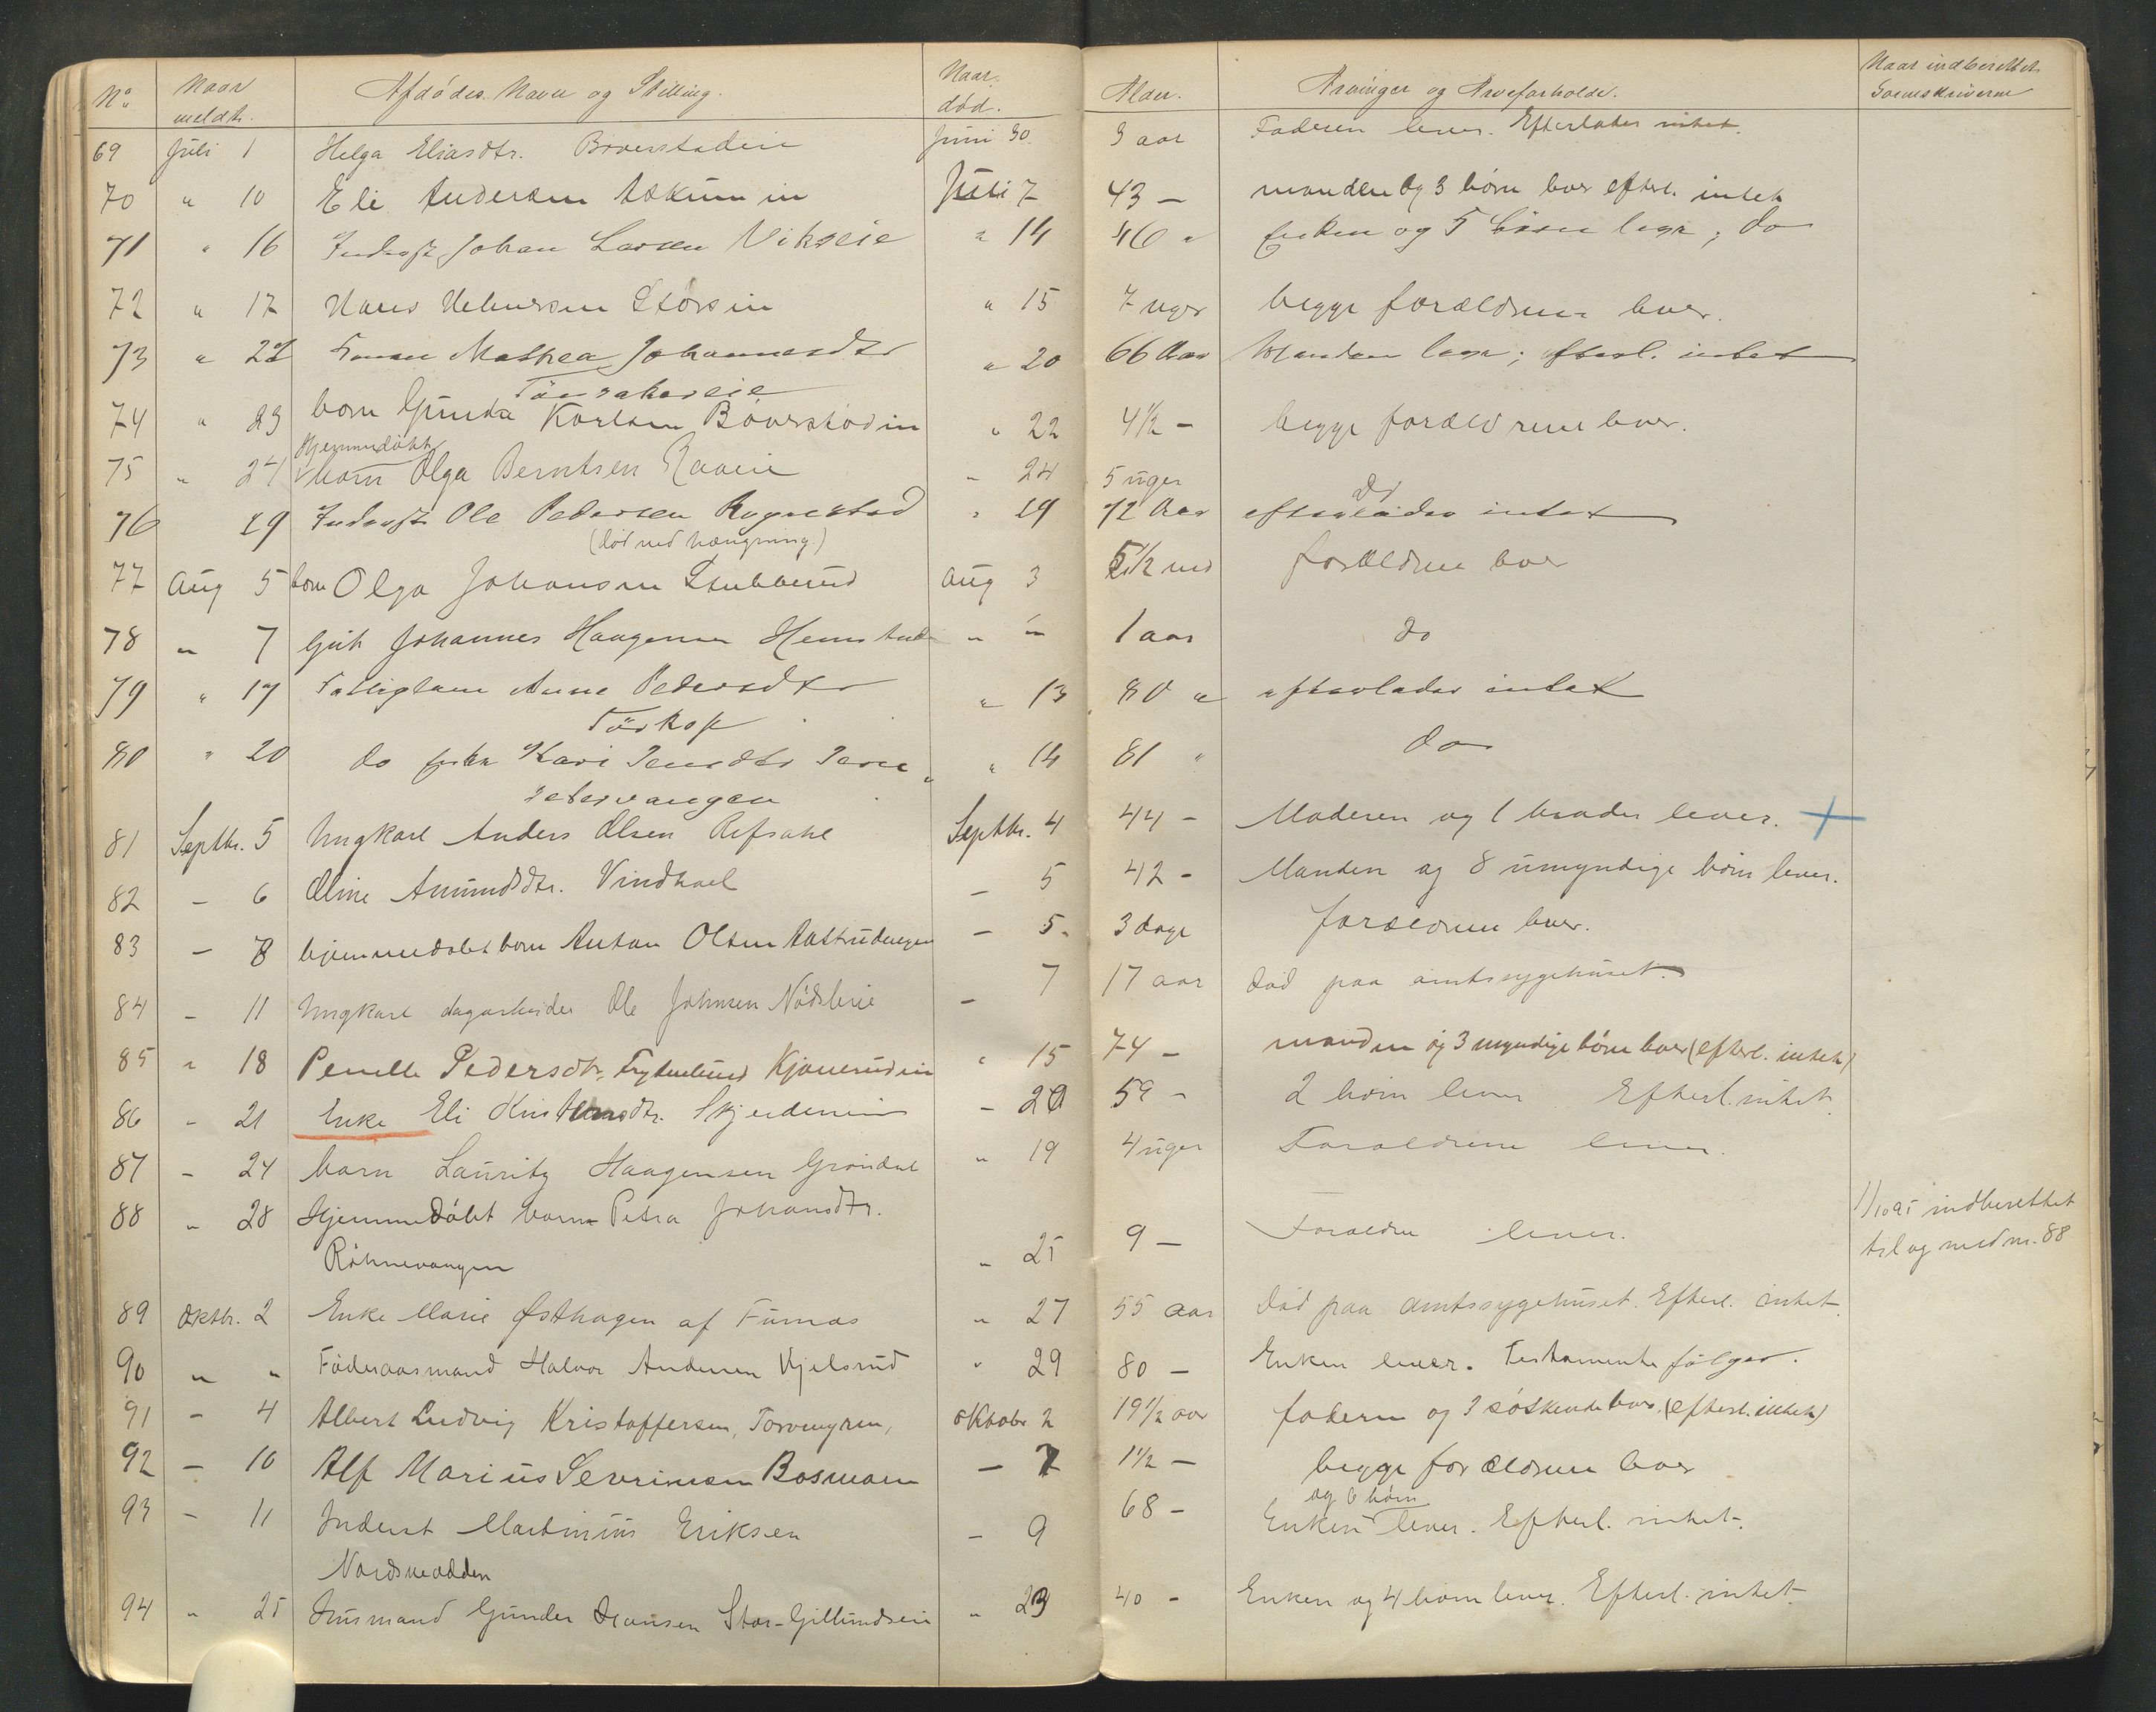 No. Naar meldt. Afdødes Navn og Stilling. Naar død. Alder. Arvinger og Arveforholde. Naar indberettet Sorenskriveren
69 Juli 1 Helga Eliasdtr. Bøverstadeie Juni 30. 3 aar Faderen lever. Efterlader intet.
70 " 10 Eli Andersen Juli 7 43 — manden og 3 børn lever efterl. intet
71 " 16 Inderst Johan Larsen Vikseie " 14 46 " Enken og 5 børn leve; do
72 " 17 Hans " 15 7 uger begge forældrene lever.
73 " 22 Konen Mathea Johannesdtr " 20 66 Aar Manden leve; efterl. intet
74 " 23 barn Gunda Karlsen Bøverstadeie " 22 4 1/2 — begge forældrene lever.
Hjemmedøbt
75 " 24 barn Olga Berntsen " 24 5 uger do
76 29 Inderst Ole Pedersen Rognestad " 29 72 Aar efterlader intet
(død ved hængning.)
77 Aug 5 barn Olga Johansen Stubberud Aug 3 5 1/2 md forældrene lever
78 " 7 Gut Johannes Haagensen " " 1 aar do
79 " 17 Fattiglem Anne Pedersdtr " 13 80 " efterlader intet
80 " 20 do enke Kari Jensdtr " 14 81 " do
81 Septbr. 5 Ungkarl Anders Olsen Refsahl Septbr. 4 44 — Moderen og 1 broder lever. +
82 — 6 Oline Amundsdtr. Vindhoel — 5 42 — Manden og 8 umyndige børn lever.
83 — 8 hjemmedøbt barn Anton Olsen — 5. 3 dage forældrene lever.
84 — 11 Ungkarl dagarbeider Ole Johnsen — 7 17 aar død paa amtssygehuset.
85 " 18 Pernelle Pedersdtr, Kjønerudeie " 15 74 — manden og 3 myndige børn lever (efterl. intet)
86 — 21 Enke Eli — 20 59 — 2 børn lever Efterl. intet.
87 — 24 barn Lauritz Haagensen Grøndal " 19 4 uger Forældrene lever.
88 " 28 Hjemmedøbt barn Petra Johansdtr. 1/10 95 indberettet
Röhnevangen " 25 9 — Forældre lever. til og med nr. 88
89 Oktbr. 2 Enke Marie Østhagen af Furnæs " 27 55 aar død paa amtssygehuset. Efterl. intet.
90 " " Føderaasmand Halvor Andersen Kjelsrud " 29 80 — Enken lever. Testamente følger.
91 — 4 Albert Ludvig Kristoffersen, Torvmyren, Oktobr 2 19 1/2 aar faderen og 3 søskende lever. (efterl. intet)
92 — 10 Alf Marius Severinsen Bosmoen — 7 1 1/2 — begge forældrene lever
og 6 børn
93 — 11 Inderst Martinius Eriksen — 9 68 — Enken lever. Efterl. intet.
Nordsveodden
94 " 25 Husmand Gunder Hansen Stor-Gillundseie " 23 40 — Enken og 4 børn lever. Efterl. intet.